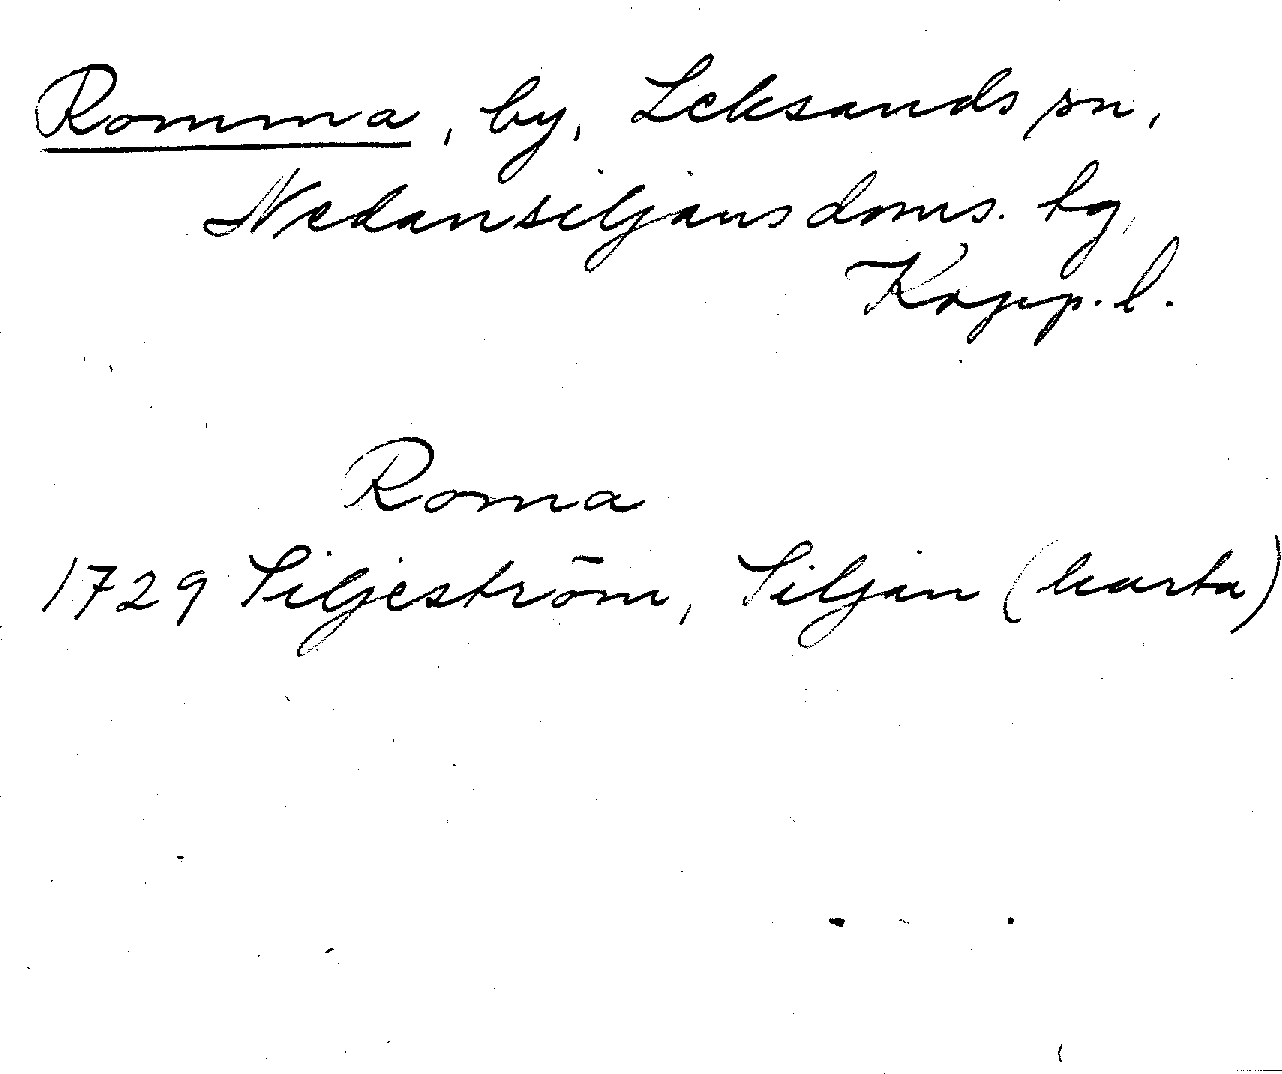 Romma, by, Leksands sn,
Nedansiljans doms. tg,
Kopp. l.
Roma
1729 Siljeström, Siljan (karta)